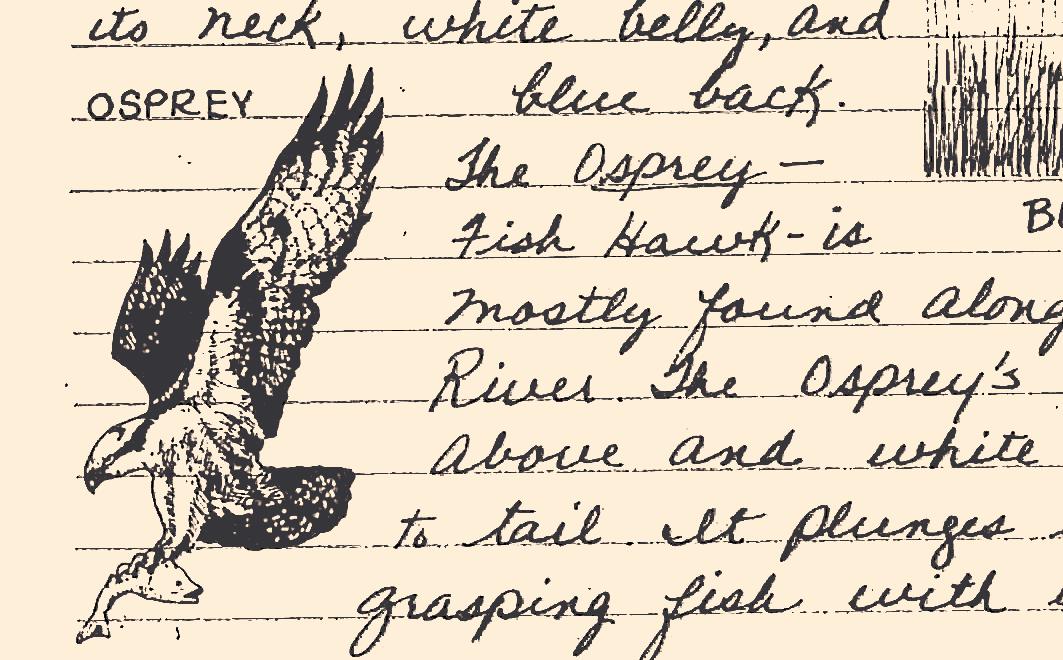 its neck, white belly, and
OSPREY blue back.
The Osprey —
Fish Hawk - is
mostly found along
River. The Osprey's
above and white
to tail. It plunges
grasping fish with